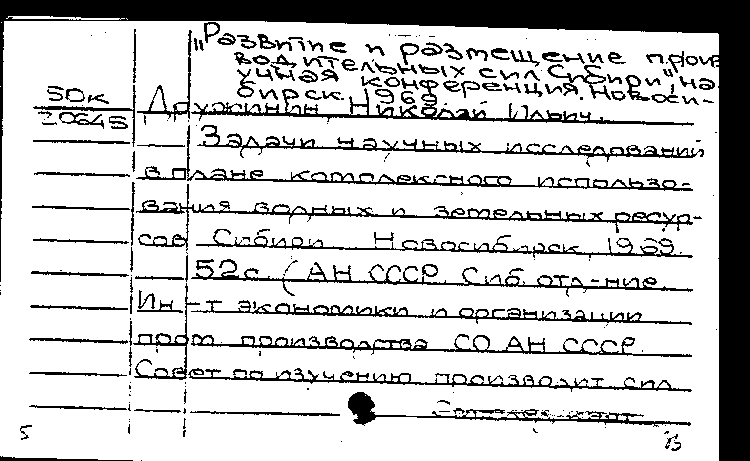 „Развитие и размещение произ
водительных сил Сибири", на
учная конференция. Новоси-
бирск. 1969
SDк
20645
Дружинин, Николай Ильич.
Задачи научных исследований
в плане комплексного использо-
вания водных и земельных ресур-
сов Сибири. Новосибирск, 1969.
52с. (АН СССР. Сиб. отд-ние.
Ин-т экономики и организации
пром. производства СО АН СССР.
Совет по изучению производит. сил
5